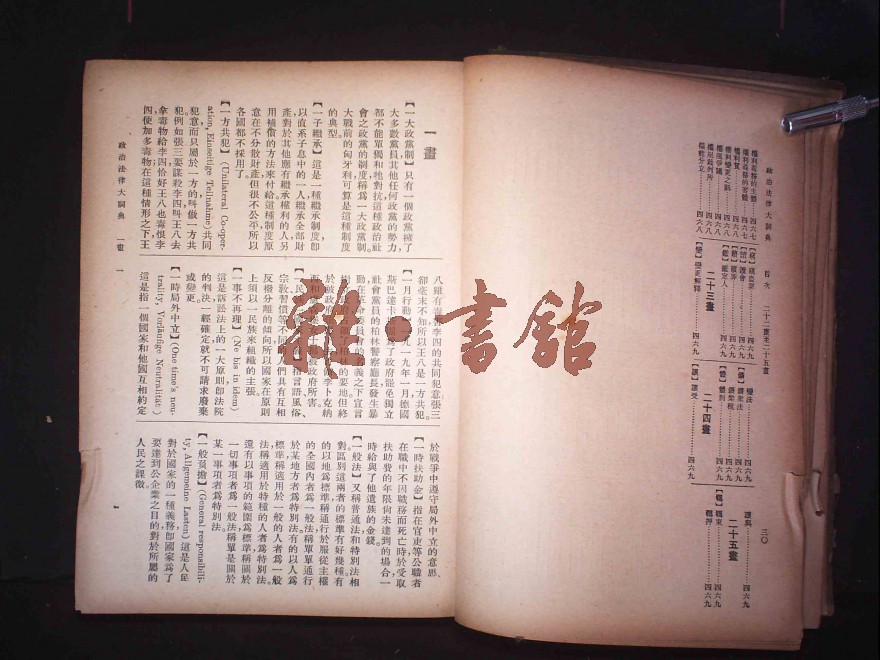 政治法律大詞典　目次　二十二畫至二十五畫　三〇
權利義務的主體……四六七
權利義務的客體……四六七
權利質……四六八
權利變更之訴……四六八
權限爭議……四六八
權限裁判所……四六八
權能分立……四六八
二十三畫
【變】變更解釋……四六九
二十四畫
【讓】讓受……四六九
變法……四六九
鹽業法……四六九
鹽業稅……四六九
讓與……四六九
二十五畫
一畫
【一大政黨制】只有一個政黨擁了
大多數黨員其他任何政黨的勢力
都不能單獨和牠對抗這種政治社
會之政黨的制度稱爲一大政黨制。
大戰前的匈牙利可算是這種制度
的典型。
【一子繼承】這是一種繼承制度卽
以直系子息中的一人繼承全部財
產對於其他應有繼承權利的人另
用補償的方法來付給這種制度原
意在不分散財產但很不公平所以
各國都不採用了。
【一方共犯】(Unilateral Co-oper-
ation, Einseitige Teilnahme)共同
犯意而只屬於一方的叫做一方共
犯。例如張三要謀殺李四叫王八去
拿毒物給李四恰好王八也毒恨李
四便加多毒物在這種情形之下王
八雖有毒害李四的共同犯意張三
卻毫末不知所以王八是一方共犯。
【一月行動】一九一九年一月德國
斯巴達卡
了政府罷免獨立
社會黨員的柏林警察廳長發生暴
動在革命委員會的名義之下宣言
的要地但終
於被政府
李卜克納
被政府所害。
【一民族
指言語風俗
宗敎習慣等不同
們具有互相
反撥分離的傾向所以國家在原則
上須以一民族來組織的主張。
【一事不再理】(Ne bis in idem)
這是訴訟法上的一大原則卽法院
的判決一經確定就不可請求廢棄
或變更。
【一時局外中立】(One time's neu-
trality, Vorläufige Neutralität)
這是指一個國家和他國互相約定
於戰爭中遵守局外中立的意思。
【一時扶助金】指在官吏等公職者
在職中不因職務而死亡時於受取
扶助費的年限尙未達到的場合一
時給與了他遺族的金錢。
【一般法】又稱普通法和特別法相
對區別這兩者的標準有好幾種有
的以地爲標準稱通行於服從主權
的全國內者爲一般法稱單單通行
於某地方者爲特別法有的以人爲
標準稱適用於一般的人者爲一般
法稱適用於特種的人者爲特別法
還有以事項的範圍爲標準稱關於
一切事項者爲一般法稱單是關於
某一事項者爲特別法。
【一般負擔】(General responsibili-
ty, Allgemeine Lasten)這是人民
對於國家的一種義務卽國家爲了
要達到公企業之目的對於所屬的
人民之課徵。
政治法律大詞典　一畫　一
雜·書館